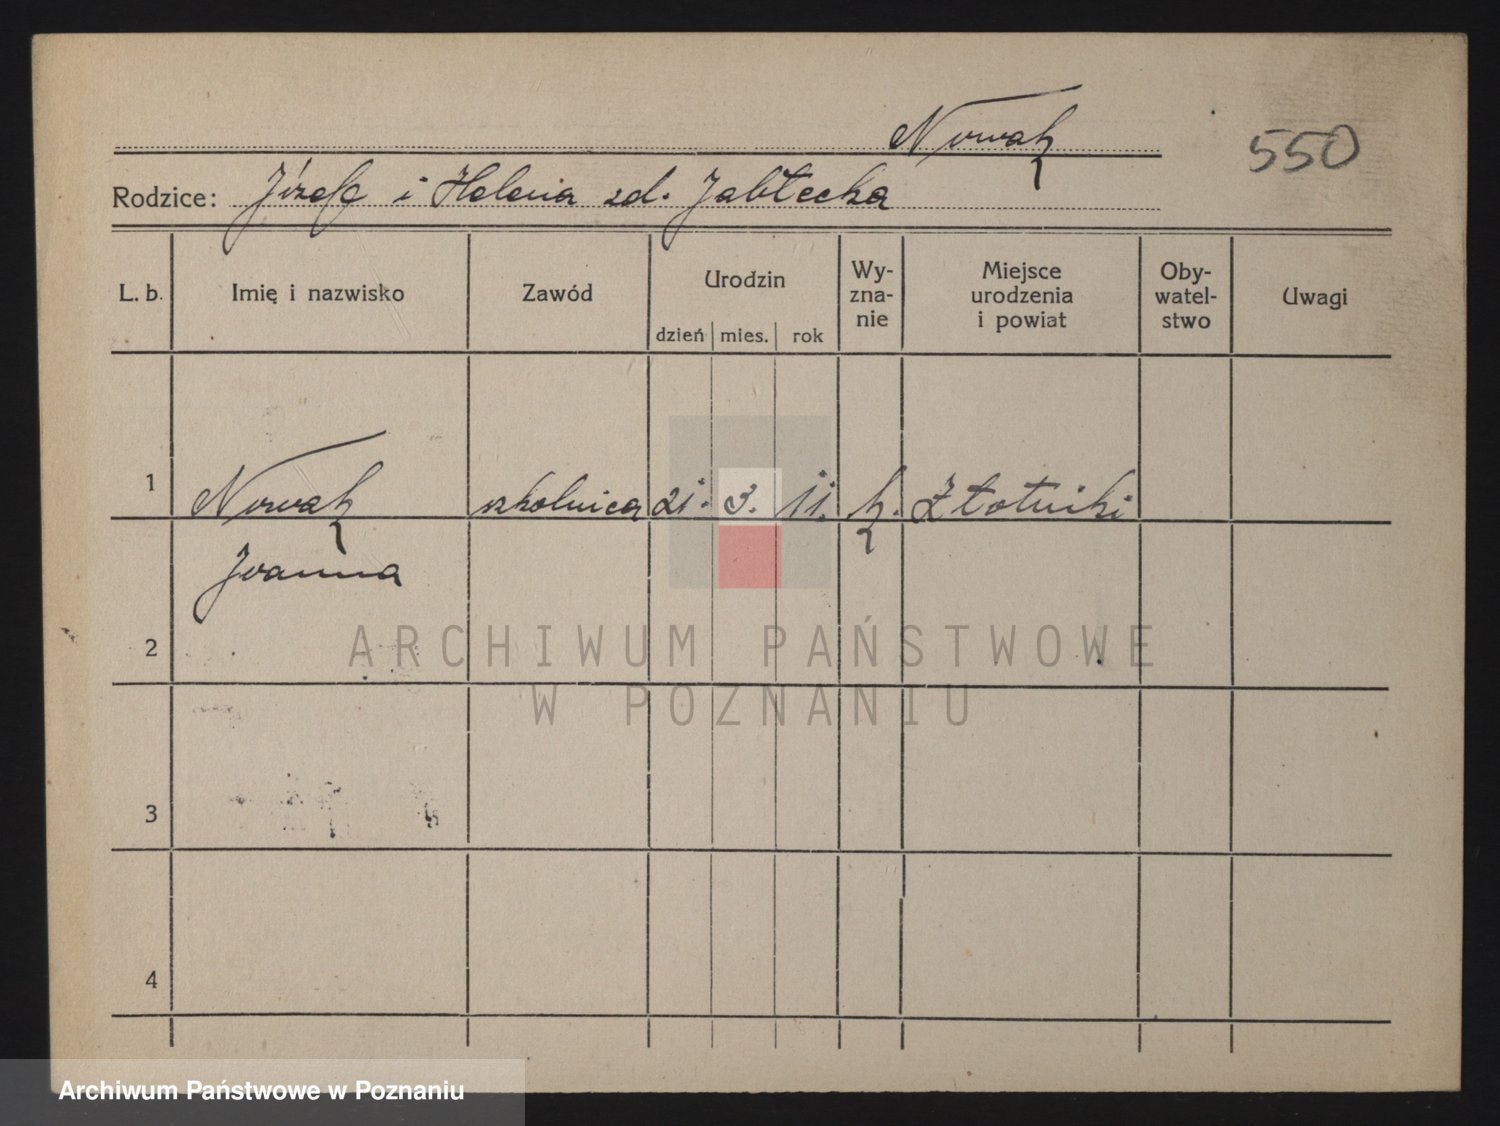 Nowak
550
Rodzice: Józef i Helena zd. Jabłecka
L. b. Imię i nazwisko Zawód Urodzin dzień mies. rok Wy-zna-nie Miejsce urodzenia i powiat Oby-watel-stwo Uwagi
1 Nowak szkolnica 21. 3. 11. k. Złotniki
Joanna
2
3
4
ARCHIWUM PAŃSTWOWE
W POZNANIU
Archiwum Państwowe w Poznaniu